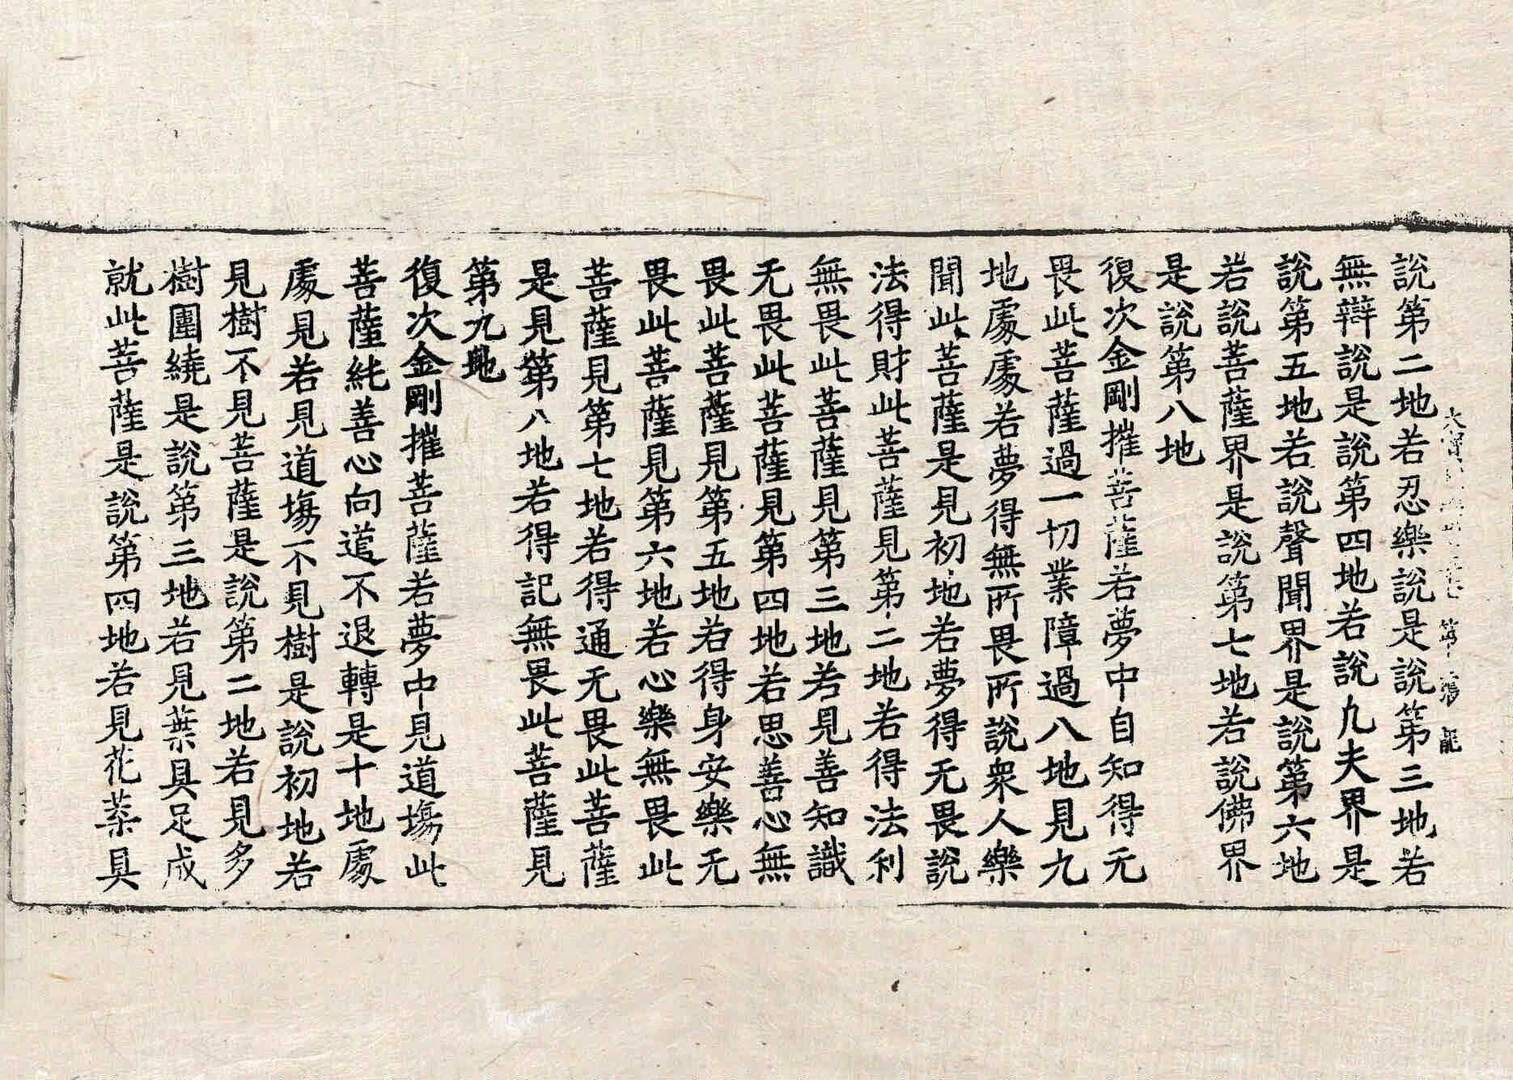 說第二地若忍樂說是說第三地若
無辯說是說第四地若說九夫界是
說第五地若說聲聞界是說第六地
若說菩薩界是說第七地若說佛界
是說第八地
復次金剛摧菩薩若夢中自知得无
畏此菩薩過一切業障過八地見九
地處處若夢得無所畏所說衆人樂
聞此菩薩是見初地若夢得无畏說
法得財此菩薩見第二地若得法利
無畏此菩薩見第三地若見善知識
无畏此菩薩見第四地若思善心無
畏此菩薩見第五地若得身安樂无
畏此菩薩見第六地若心樂無畏此
菩薩見第七地若得通无畏此菩薩
是見第八地若得記無畏此菩薩見
第九地
復次金剛摧菩薩若夢中見道塲此
菩薩純善心向道不退轉是十地處
處見若見道塲不見樹是說初地若
見樹不見菩薩是說第二地若見多
樹圍繞是說第三地若見葉具足成
就此菩薩是說第四地若見花菓具